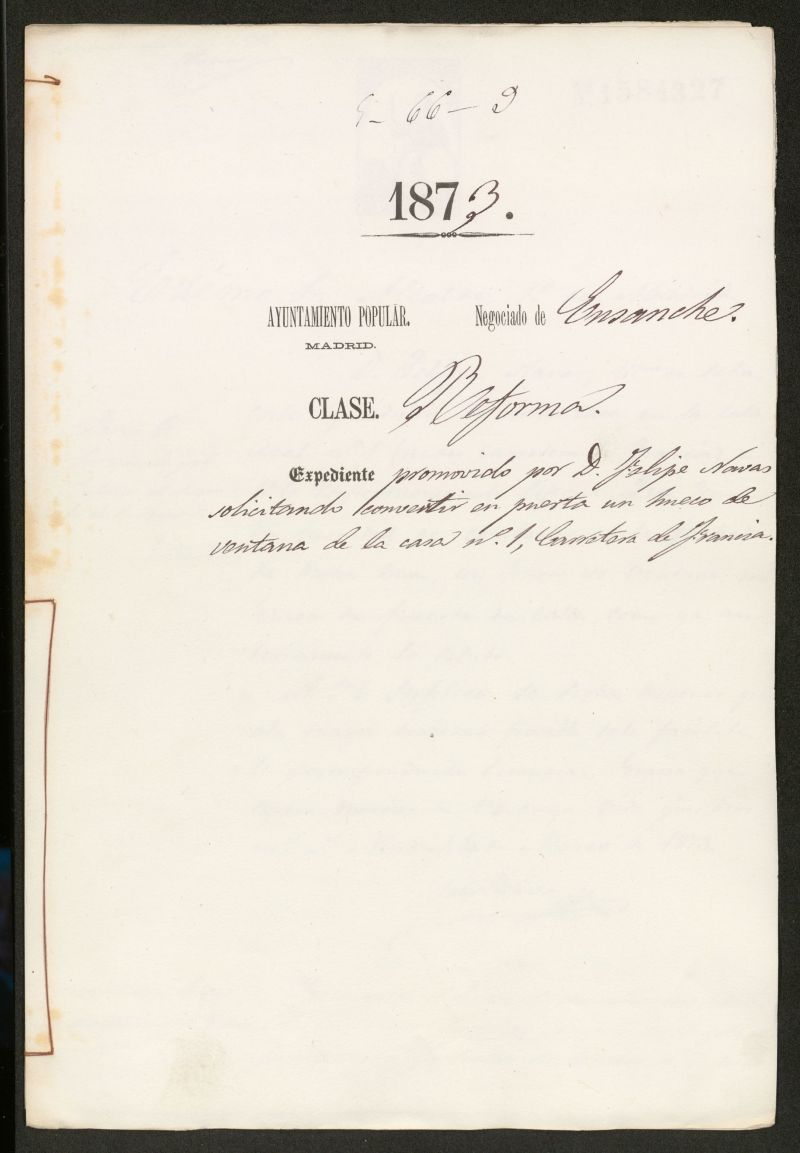 5-66-2
1873.
AYUNTAMIENTO POPULAR. Negociado de Ensanche.
MADRID.
CLASE. Reforma.
Expediente promovido por D. Felipe Navas
solicitando convertir en puerta un hueco de
ventana de la casa nº. 1, Carretera de Francia.